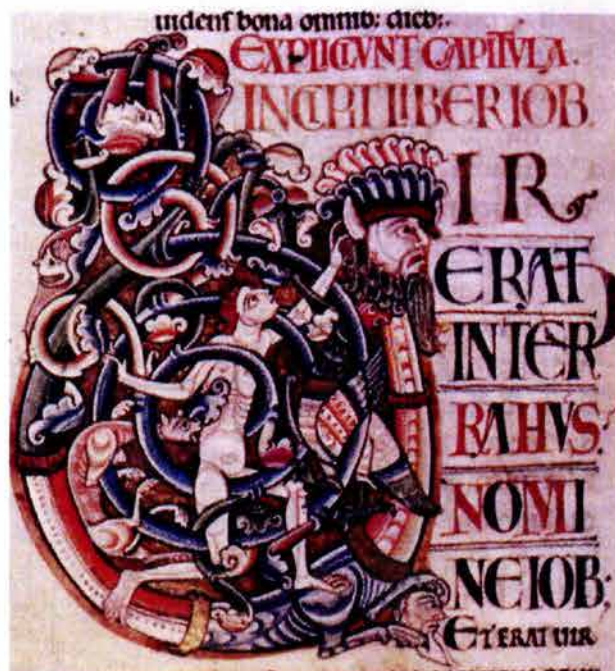 uidens bona omnib: dieb:.
EXPLICIUNT CAPITVLA.
INCIPIT LIBER IOB.
VIR
ERAT
INTER
RAHVS.
NOMI
NEIOB.
ET ERAT UIR